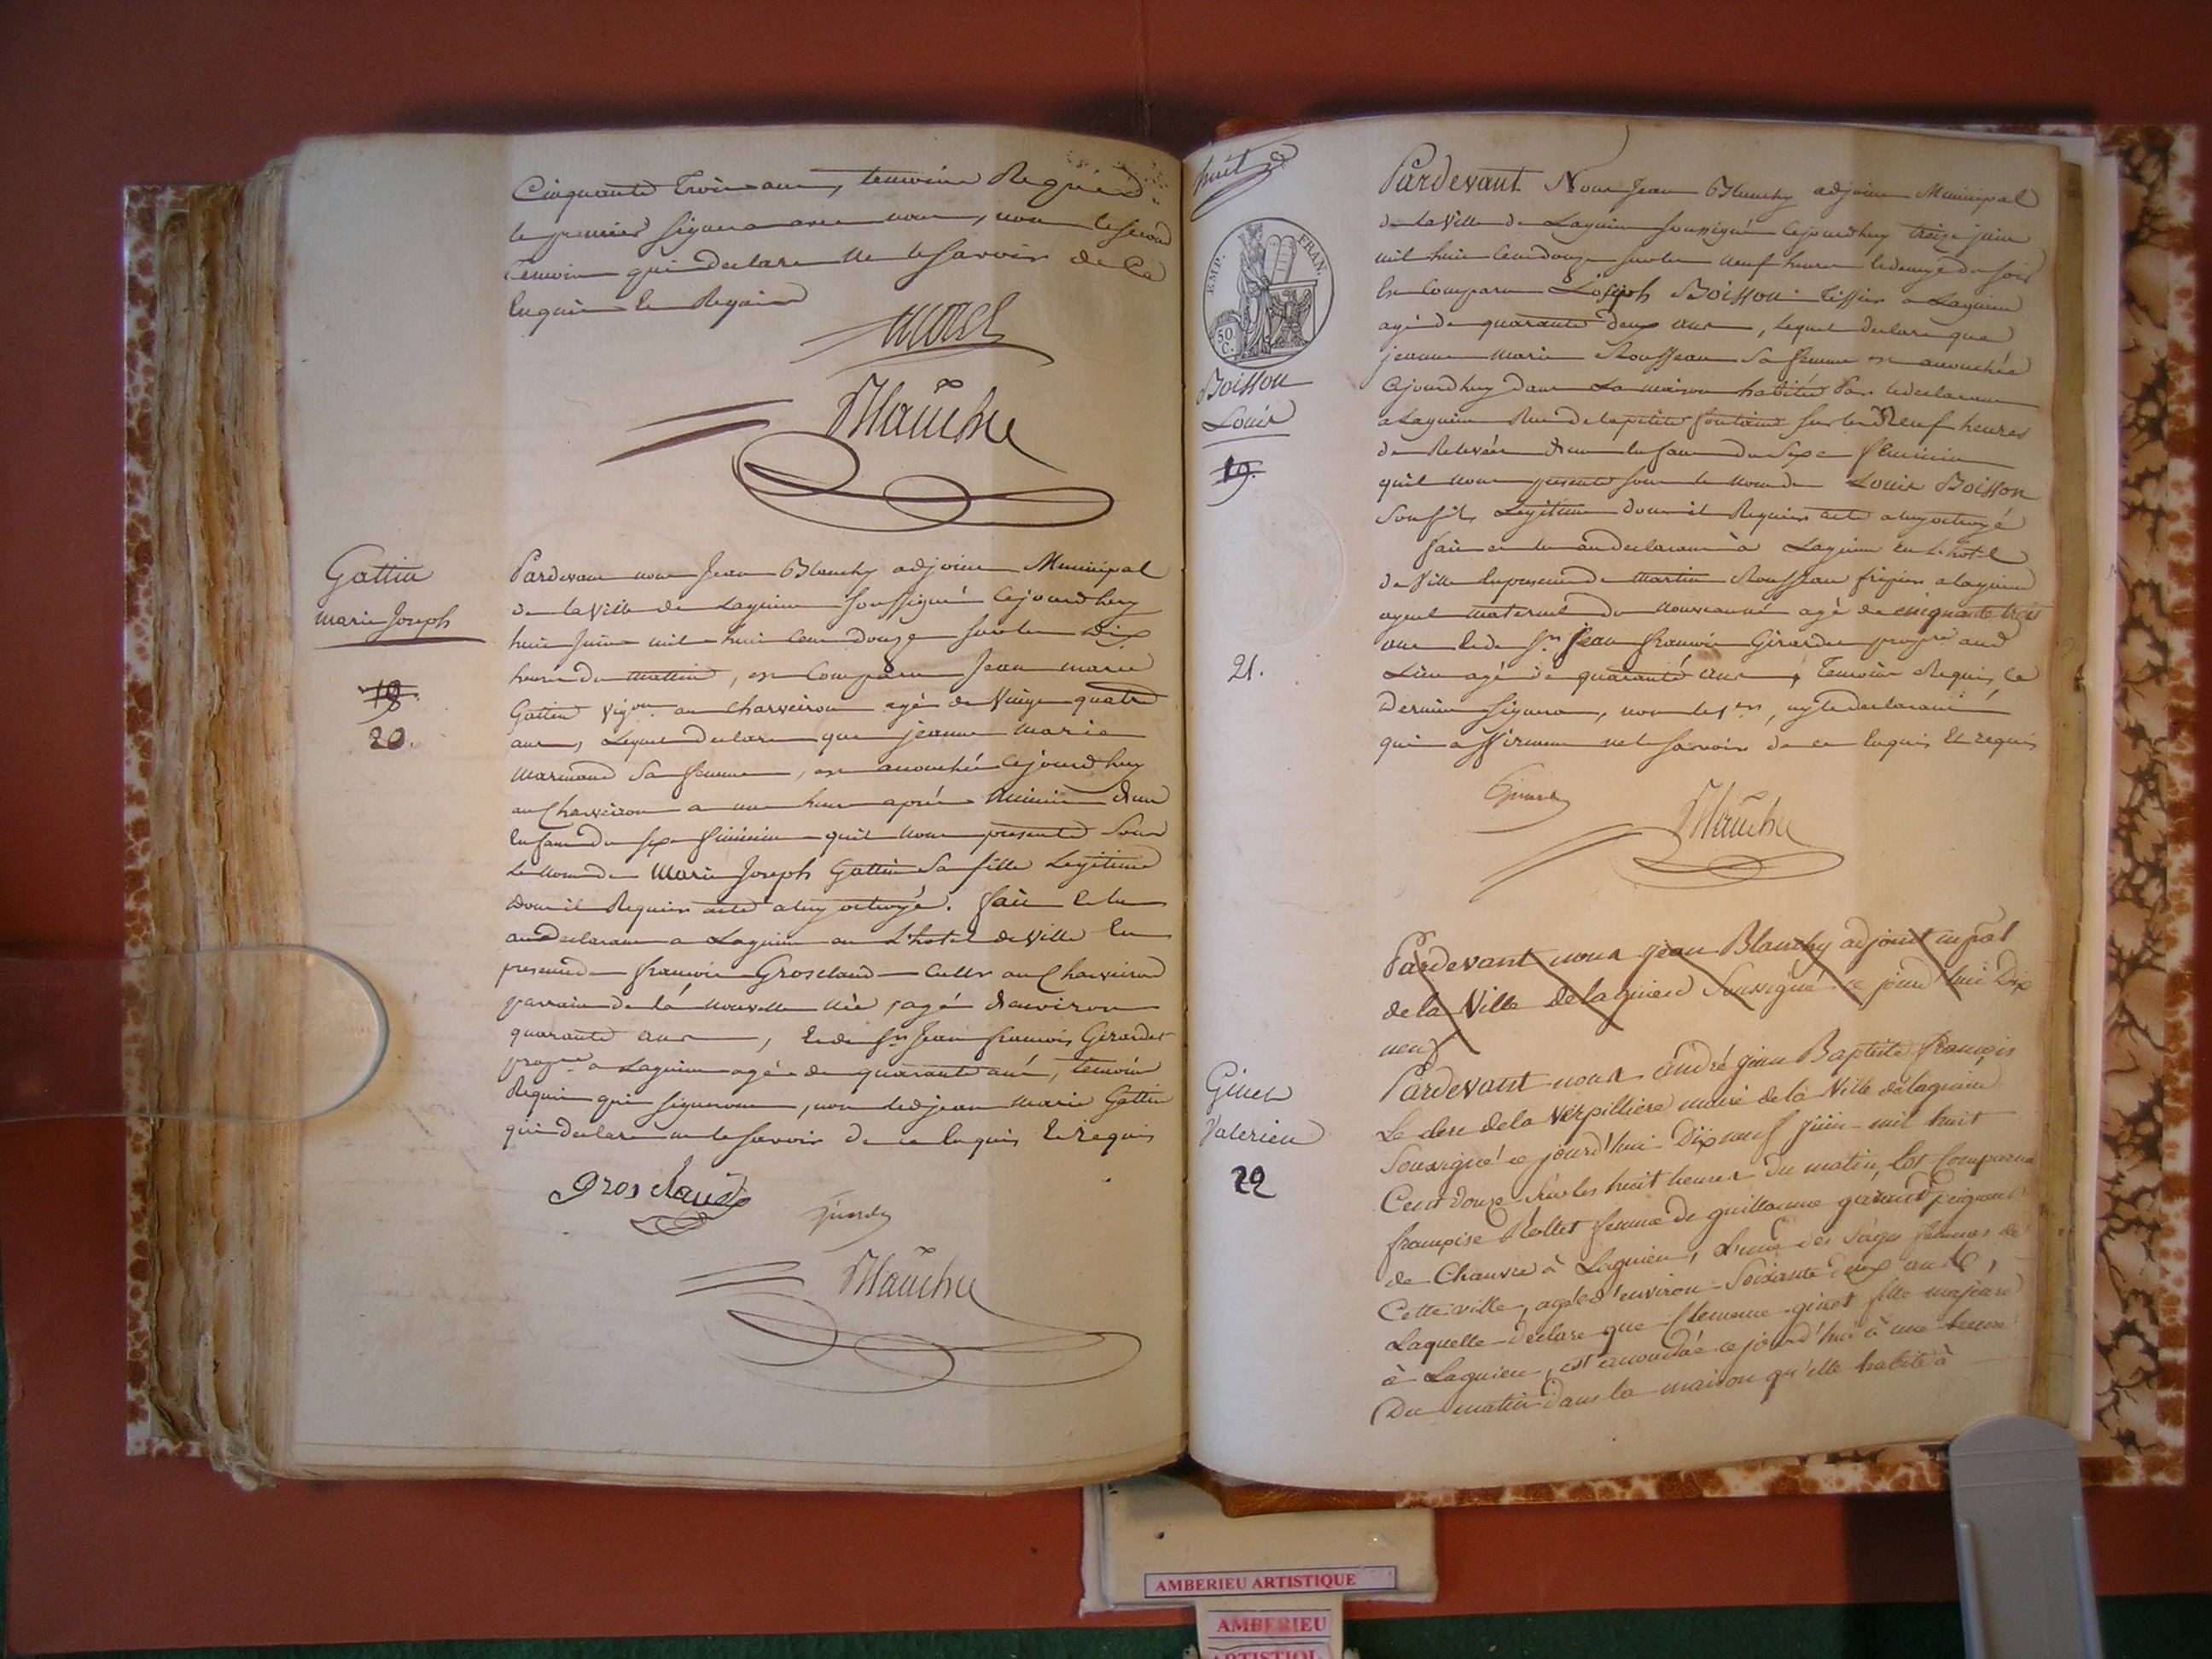 Cinquante Trois ans, temoins Requis
le premier signera avec nous, non le second
temoin qui declare ne le savoir de Ce
Enquis et Requis
morel
Blanchy
Gattin
Marie Joseph
18.
20.
Pardevant nous Jean Blanchy adjoint Municipal
de la Ville de Lagnieu soussigné Cejourdhuy
huit Juin mil huit Cent Douze sur les Dix
heures du Mattin, est Comparu Jean marie
Gattin vig.on au Charveiron agé de Vingt quatre
ans, Lequel declare que jeanne Marie
Marmand Sa femme, est accouchée Cejourdhuy
au Charveiron a une heure aprés Minuit d'un
Enfant du sexe féminin quil nous presente Sous
Le nom de Marie Joseph Gattin Sa fille Legitime
dont il Requiert acte a luy octroyé. fait et lu
au Declarant a Lagnieu en L'hotel de Ville En
presence de francois Grosclaud Cult.r au Charveiron
parrain de la nouvelle née, agé d'environ
quarante ans, et de s.r Jean francois Girardet
prop.re a Lagnieu agé de quarante ans, temoins
Requis qui signeront, non led. jean Marie Gattin
qui declare ne le savoir de ce Enquis et requis
Gros claude
Blanchy
huit
EMP. FRAN.
50 C.
Boisson
Louis
19.
21.
Pardevant Nous Jean Blanchy adjoint Municipal
de la Ville de Lagnieu soussigné Cejourdhuy treize juin
mil huit Cent douze sur les neuf heures et demye du soir
Est Comparu Joseph Boisson Tissier a Lagnieu
agé de quarante deux ans, Lequel declare que
jeanne Marie Rousseau Sa femme est accouchée
Cejourdhuy dans La maison habitée Par le declarant
a Lagnieu Rue de la petite fontaine sur les Neuf heures
de Relevée d'un Enfant du Sexe féminin
quil nous presente sous le nom de Louis Boisson
Son fils Legitime dont il Requiert acte a luy octroyé
fait et lu au declarant à Lagnieu En L'hotel
de Ville En presence de Martin Rousseau fripier a lagnieu
ayeul maternel du nouveau né agé de cinquante trois
ans et de s.r Jean francois Girardet prop.re aud
Lieu agé de quarante ans, Temoins Requis, Ce
Dernier signera, non le p.er, ny le declarant
qui affirment ne le savoir de ce Enquis Et requis
Blanchy
Pardevant nous jean Blanchy adjoint mpal
de la Ville de lagnieu Soussigné ce jourd'hui Dix
neuf
Ginet
Valerien
22
Pardevant nous andré jean Baptiste françois
Le clerc de la Verpilliere maire de la Ville de lagnieu
Soussigné ce jourd'hui Dix neuf juin mil huit
Cent douze Sur les huit heures du matin, Est Comparue
françoise Mollet femme de guillaume giraud peigneur
de Chanvre à Lagnieu, L'une des Sages femmes de
Cette ville, agée d'environ Soixante deux ans,
Laquelle declare que Clemence ginet fille majeure
à Lagnieu, est accouchée ce jourd'hui à une heure
Du matin dans la maison qu'elle habite à
AMBERIEU ARTISTIQUE
AMBERIEU
ARTISTIQ